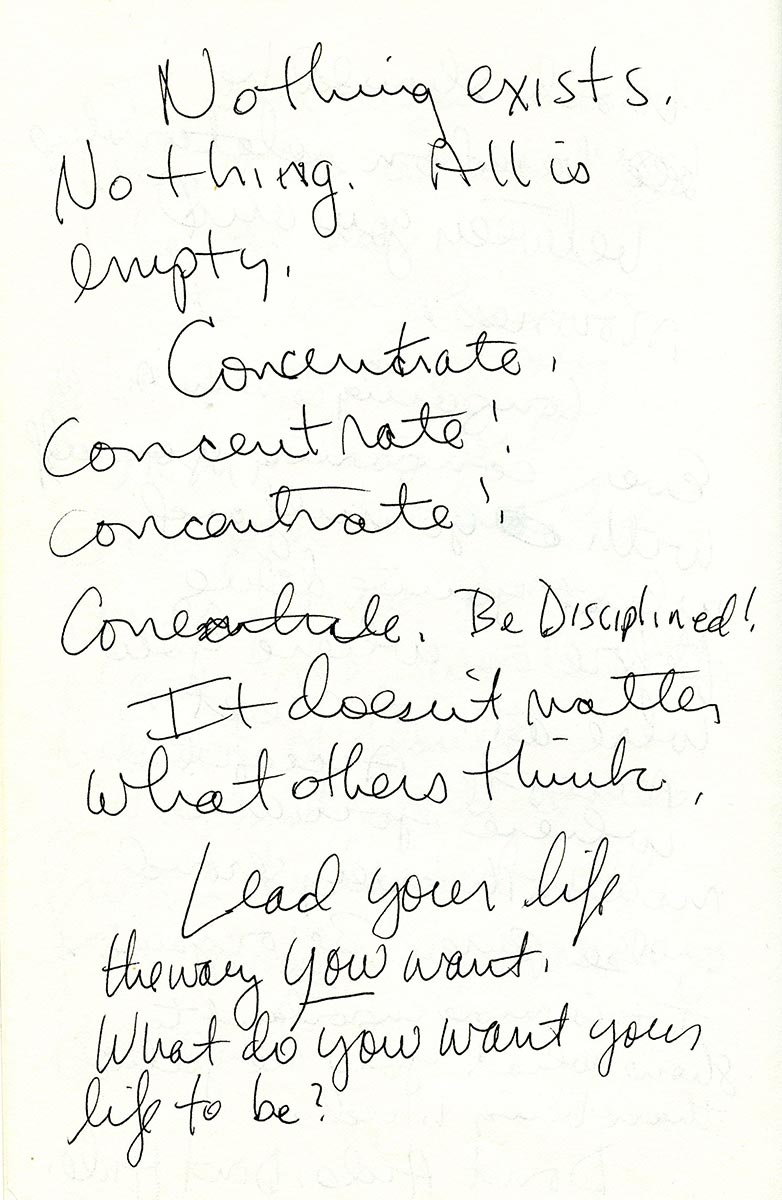 Nothing exists.
Nothing. All is
empty.
Concentrate.
Concentrate!
Concentrate!
Concentrate. Be Disciplined!
It doesn't matter
what others think.
Lead your life
the way you want.
What do you want your
life to be?